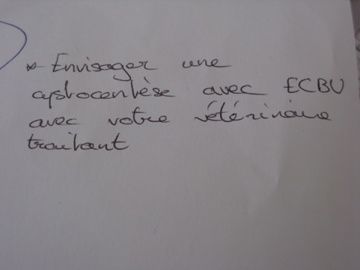 * Envisager une
cystocentèse avec ECBU
avec votre vétérinaire
traitant